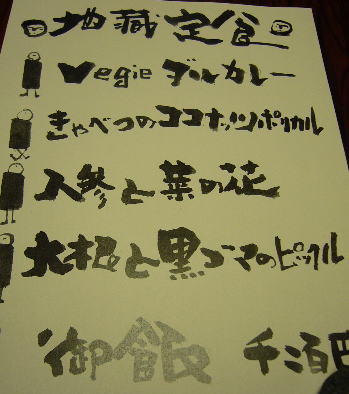 地蔵定食
Vegie ダルカレー
きゃべつのココナッツポリヤル
人参と菜の花
大根と黒ゴマのピックル
御飯 千二百円